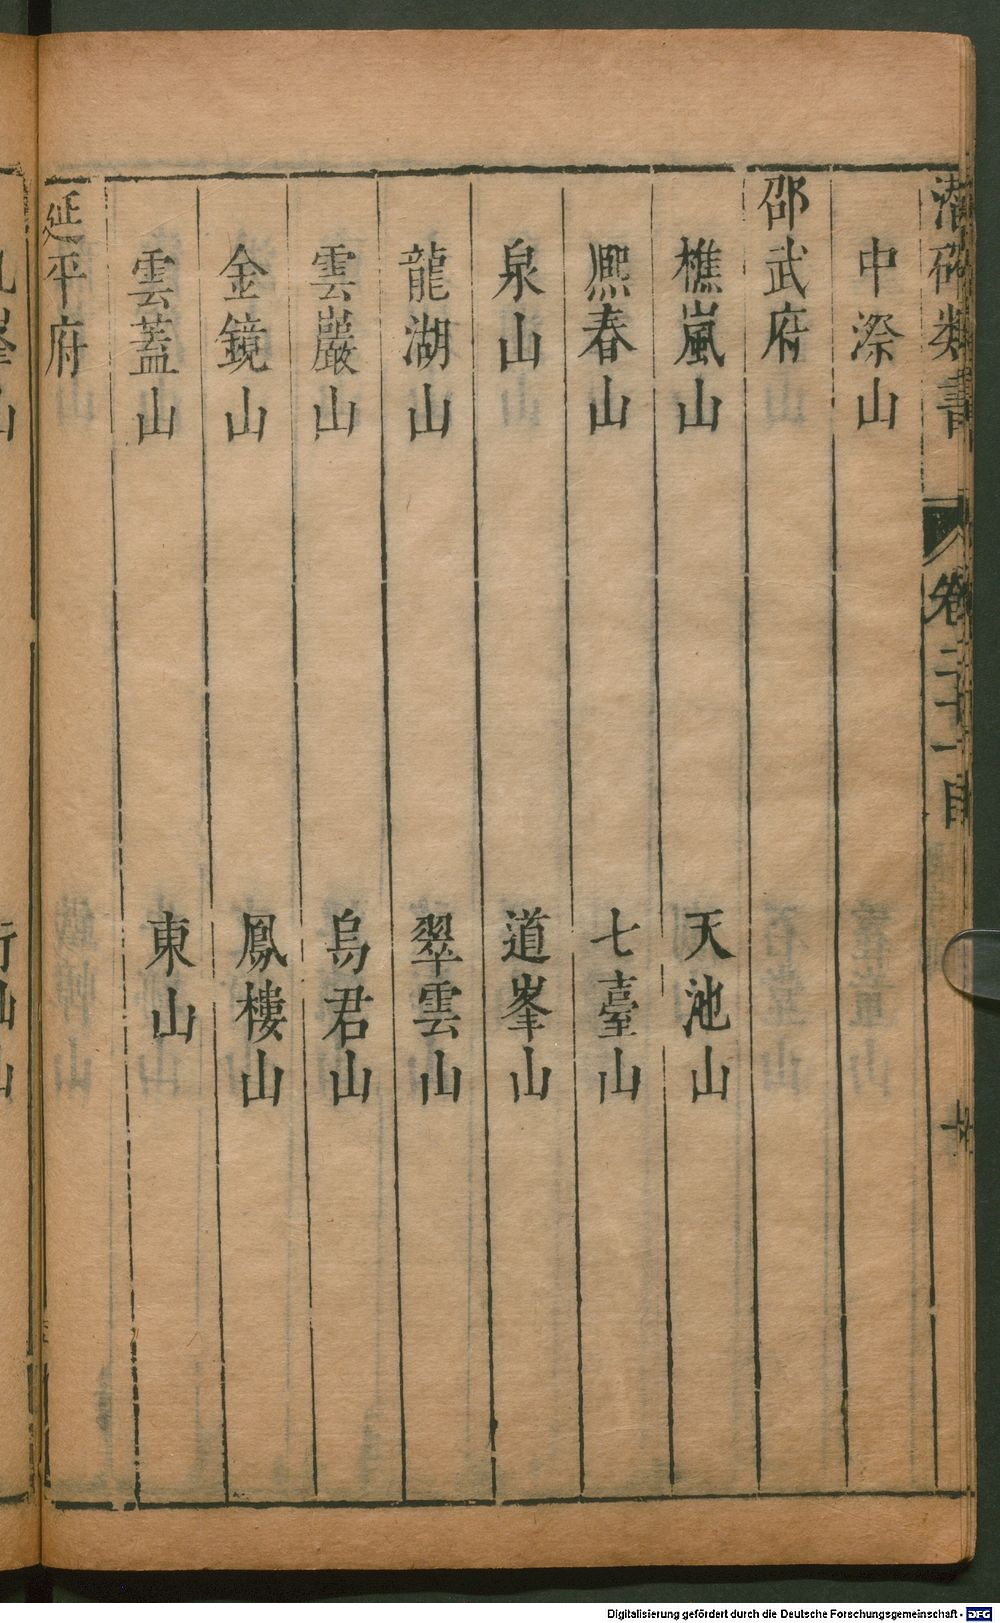 潛确類書
卷二十一目
中漈山
邵武府
樵嵐山 天池山
熈春山 七臺山
泉山 道峯山
龍湖山 翠雲山
雲巖山 烏君山
金鏡山 鳳樓山
雲蓋山 東山
延平府
Digitalisierung gefördert durch die Deutsche Forschungsgemeinschaft - DFG